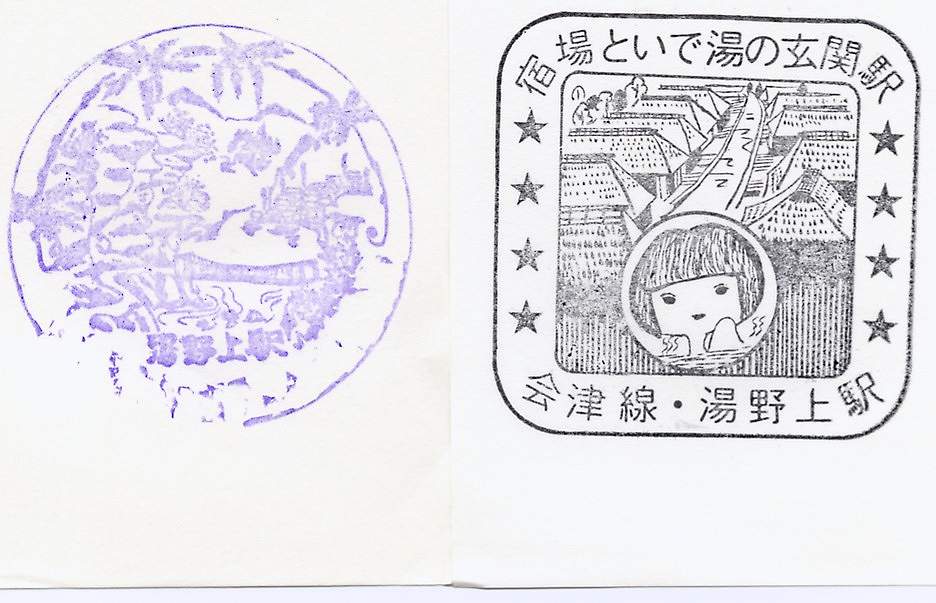 湯野上駅
宿場といで湯の玄関駅
会津線・湯野上駅